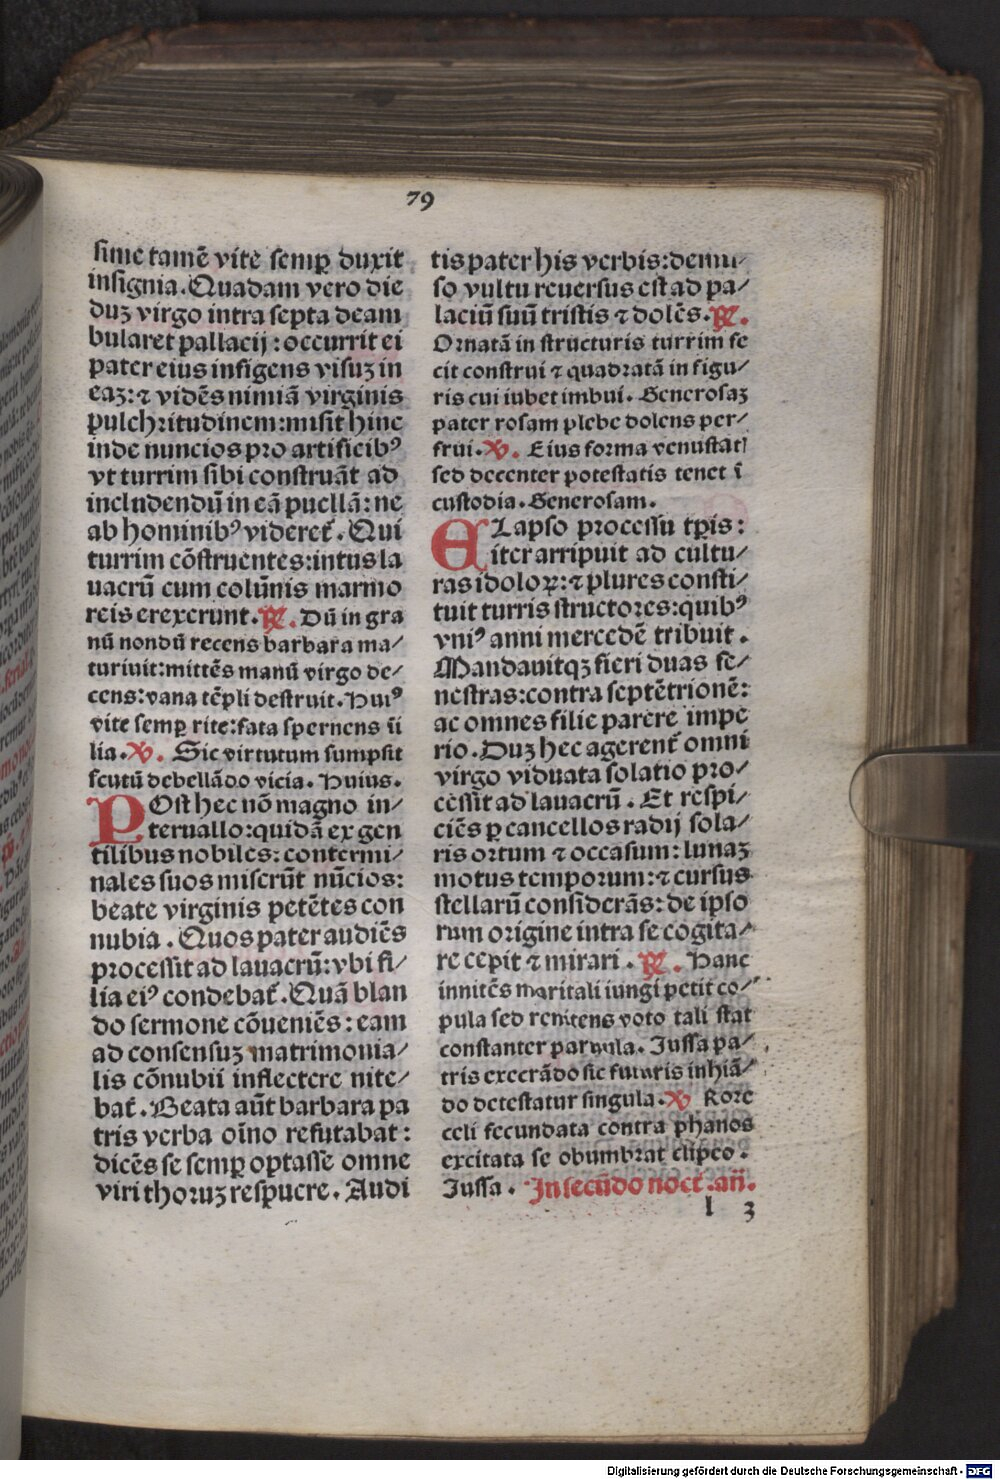 79
sime tamē vite semꝑ duxit
insignia. Quadam vero die
duꝫ virgo intra septa deam
bularet pallacij : occurrit ei
pater eius infigens visuꝫ in
eaꝫ: ⁊ vidēs nimiā virginis
pulchritudinem: misit hinc
inde nuncios pro artificibꝰ
vt turrim sibi construāt ad
includendū in eā puellā: ne
ab hominibꝰ videret̄. Qui
turrim cōstruentes: intus la
uacrū cum colūnis marmo
reis erexerunt. ℟. Dū in gra
nū nondū recens barbara ma⸗
turiuit: mittēs manū virgo de⸗
cens: vana tēpli destruit. Huiꝰ
vite semꝑ rite: fata spernens ū
lia. ℣. Sic virtutum sumpsit
scutū debellādo vicia. Huius.
POst hec nō magno in⸗
teruallo: quidā ex gen
tilibus nobiles: contermi⸗
nales suos miserūt nūcios:
beate virginis petētes con
nubia. Quos pater audiēs
processit ad lauacrū: vbi fi⸗
lia eiꝰ condebat̄. Quā blan
do sermone cōueniēs: eam
ad consensuꝫ matrimonia⸗
lis cōnubii inflectere nite⸗
bat̄. Beata aūt barbara pa
tris verba oīno refutabat :
dicēs se semꝑ optasse omne
viri thoruꝫ respuere. Audi
tis pater his verbis: demi⸗
so vultu reuersus est ad pa⸗
laciū suū tristis ⁊ dolēs. ℟.
Ornatā in structuris turrim fe
cit construi ⁊ quadratā in figu⸗
ris cui iubet imbui. Generosaꝫ
pater rosam plebe dolens per⸗
frui. ℣. Eius forma venustati
sed decenter potestatis tenet ī
custodia. Generosam.
ELapso processu tꝑis :
iter arripuit ad cultu⸗
ras idoloꝝ: ⁊ plures consti⸗
tuit turris structores: quibꝰ
vniꝰ anni mercedē tribuit .
Mandauitqꝫ fieri duas fe⸗
nestras: contra septētrionē:
ac omnes filie parere impe
rio. Duꝫ hec agerent̄ omni
virgo viduata solatio pro⸗
cessit ad lauacrū . Et respi⸗
ciēs ꝑ cancellos radij sola⸗
ris ortum ⁊ occasum: lunaꝫ
motus temporum: ⁊ cursus
stellarū considerās: de ipso
rum origine intra se cogita⸗
re cepit ⁊ mirari . ℟. Hanc
innitēs maritali iungi petit co⸗
pula sed renitens voto tali stat
constanter parvula. Jussa pa⸗
tris execrādo sic futuris inhiā⸗
do detestatur singula. ℣ Rore
celi fecundata contra phanos
excitata se obumbrat clipeo .
Jussa . In secūdo noct̄. añ.
l 3
Digitalisierung gefördert durch die Deutsche Forschungsgemeinschaft - DFG